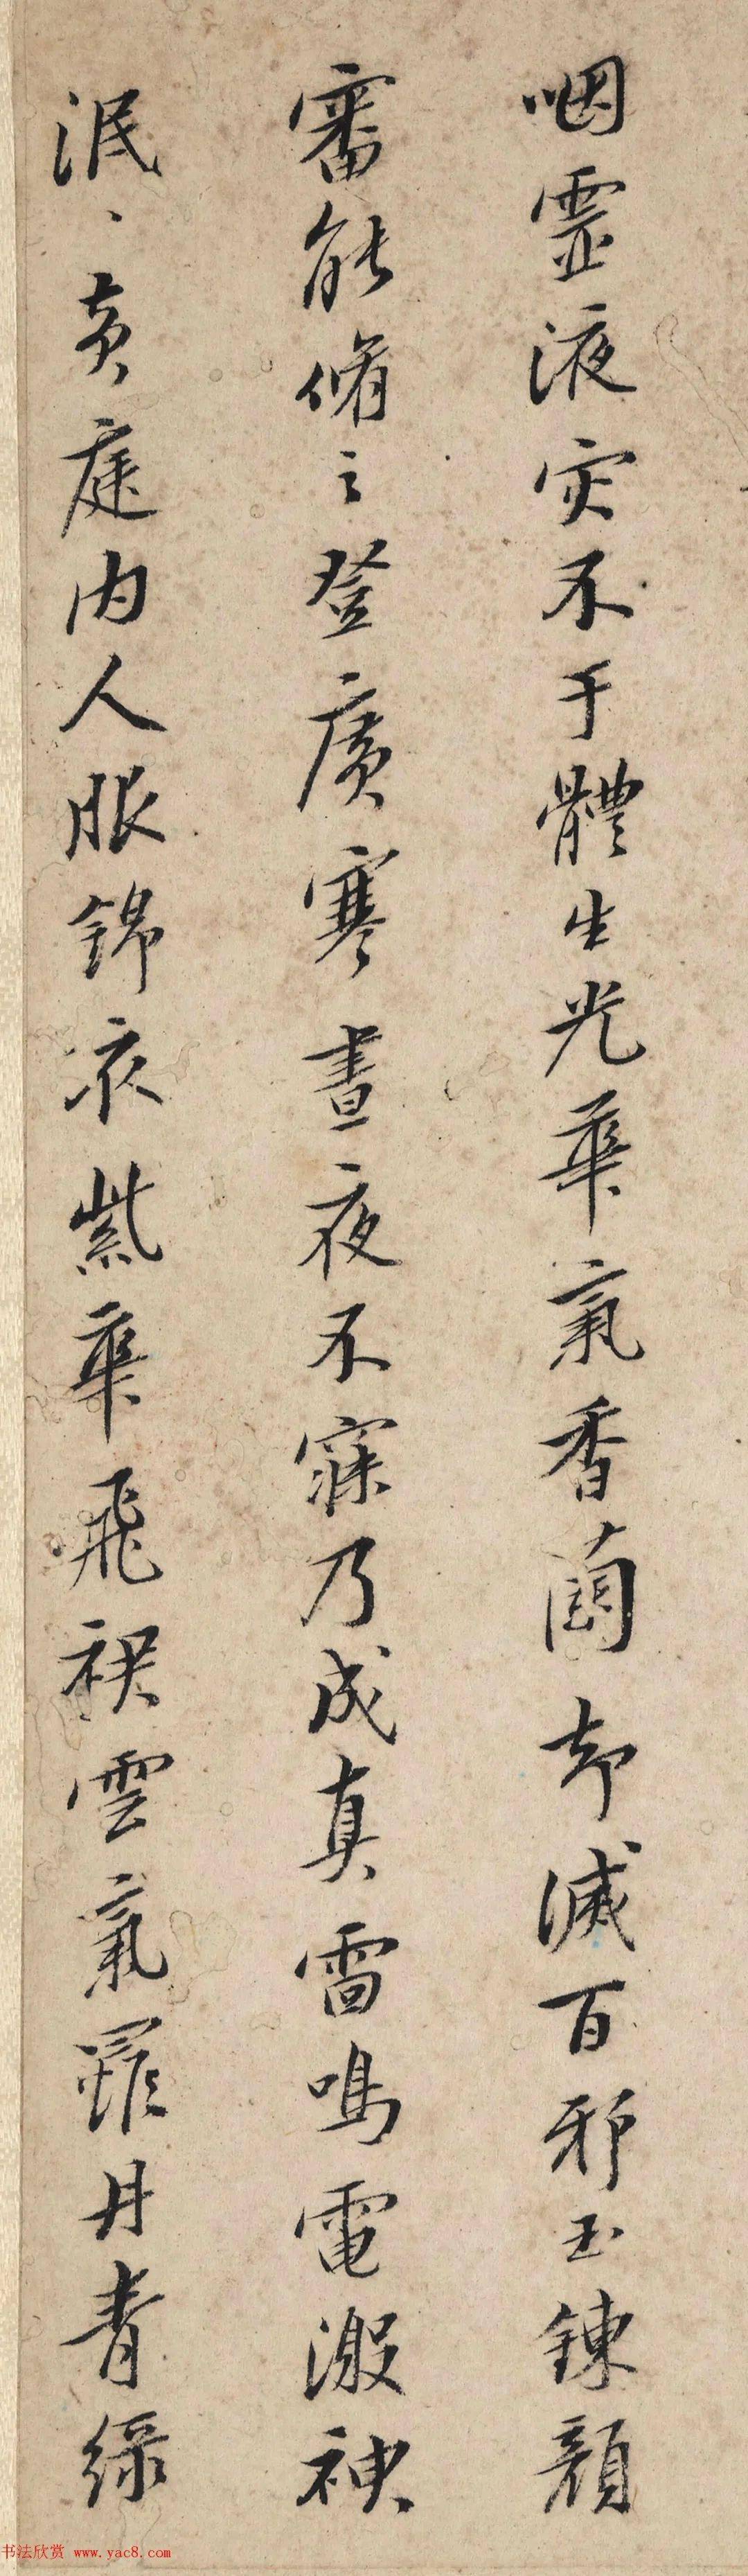 咽靈液灾不干體生光華氣香蘭却滅百邪玉鍊顏
審能脩之登廣寒晝夜不寐乃成真雷鳴電激神
泯〻黃庭内人服錦衣紫華飛裙雲氣羅丹青綠
书法欣赏 www.yac8.com